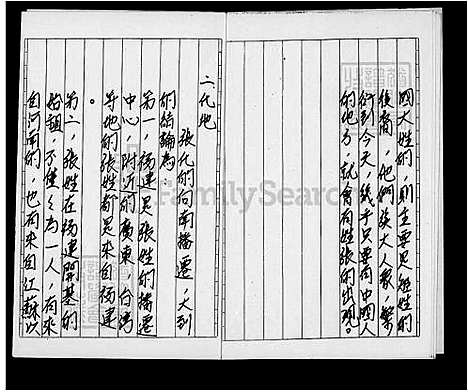 四大姓的，則主要是張姓的
後裔，他們族大人衆，繁
衍到今天，幾乎只要有中國人
的地方，就會有姓張的出現。
二代地
張化的向南播遷，大到
的結論為：
第一，福建是張姓的播遷
中心，附近的廣東，台灣
等地的張姓都是來自福建
。
第二，張姓在福建開基的
始祖，不僅僅為一人，有來
自河南的，也有來自江蘇以
FamilySearch